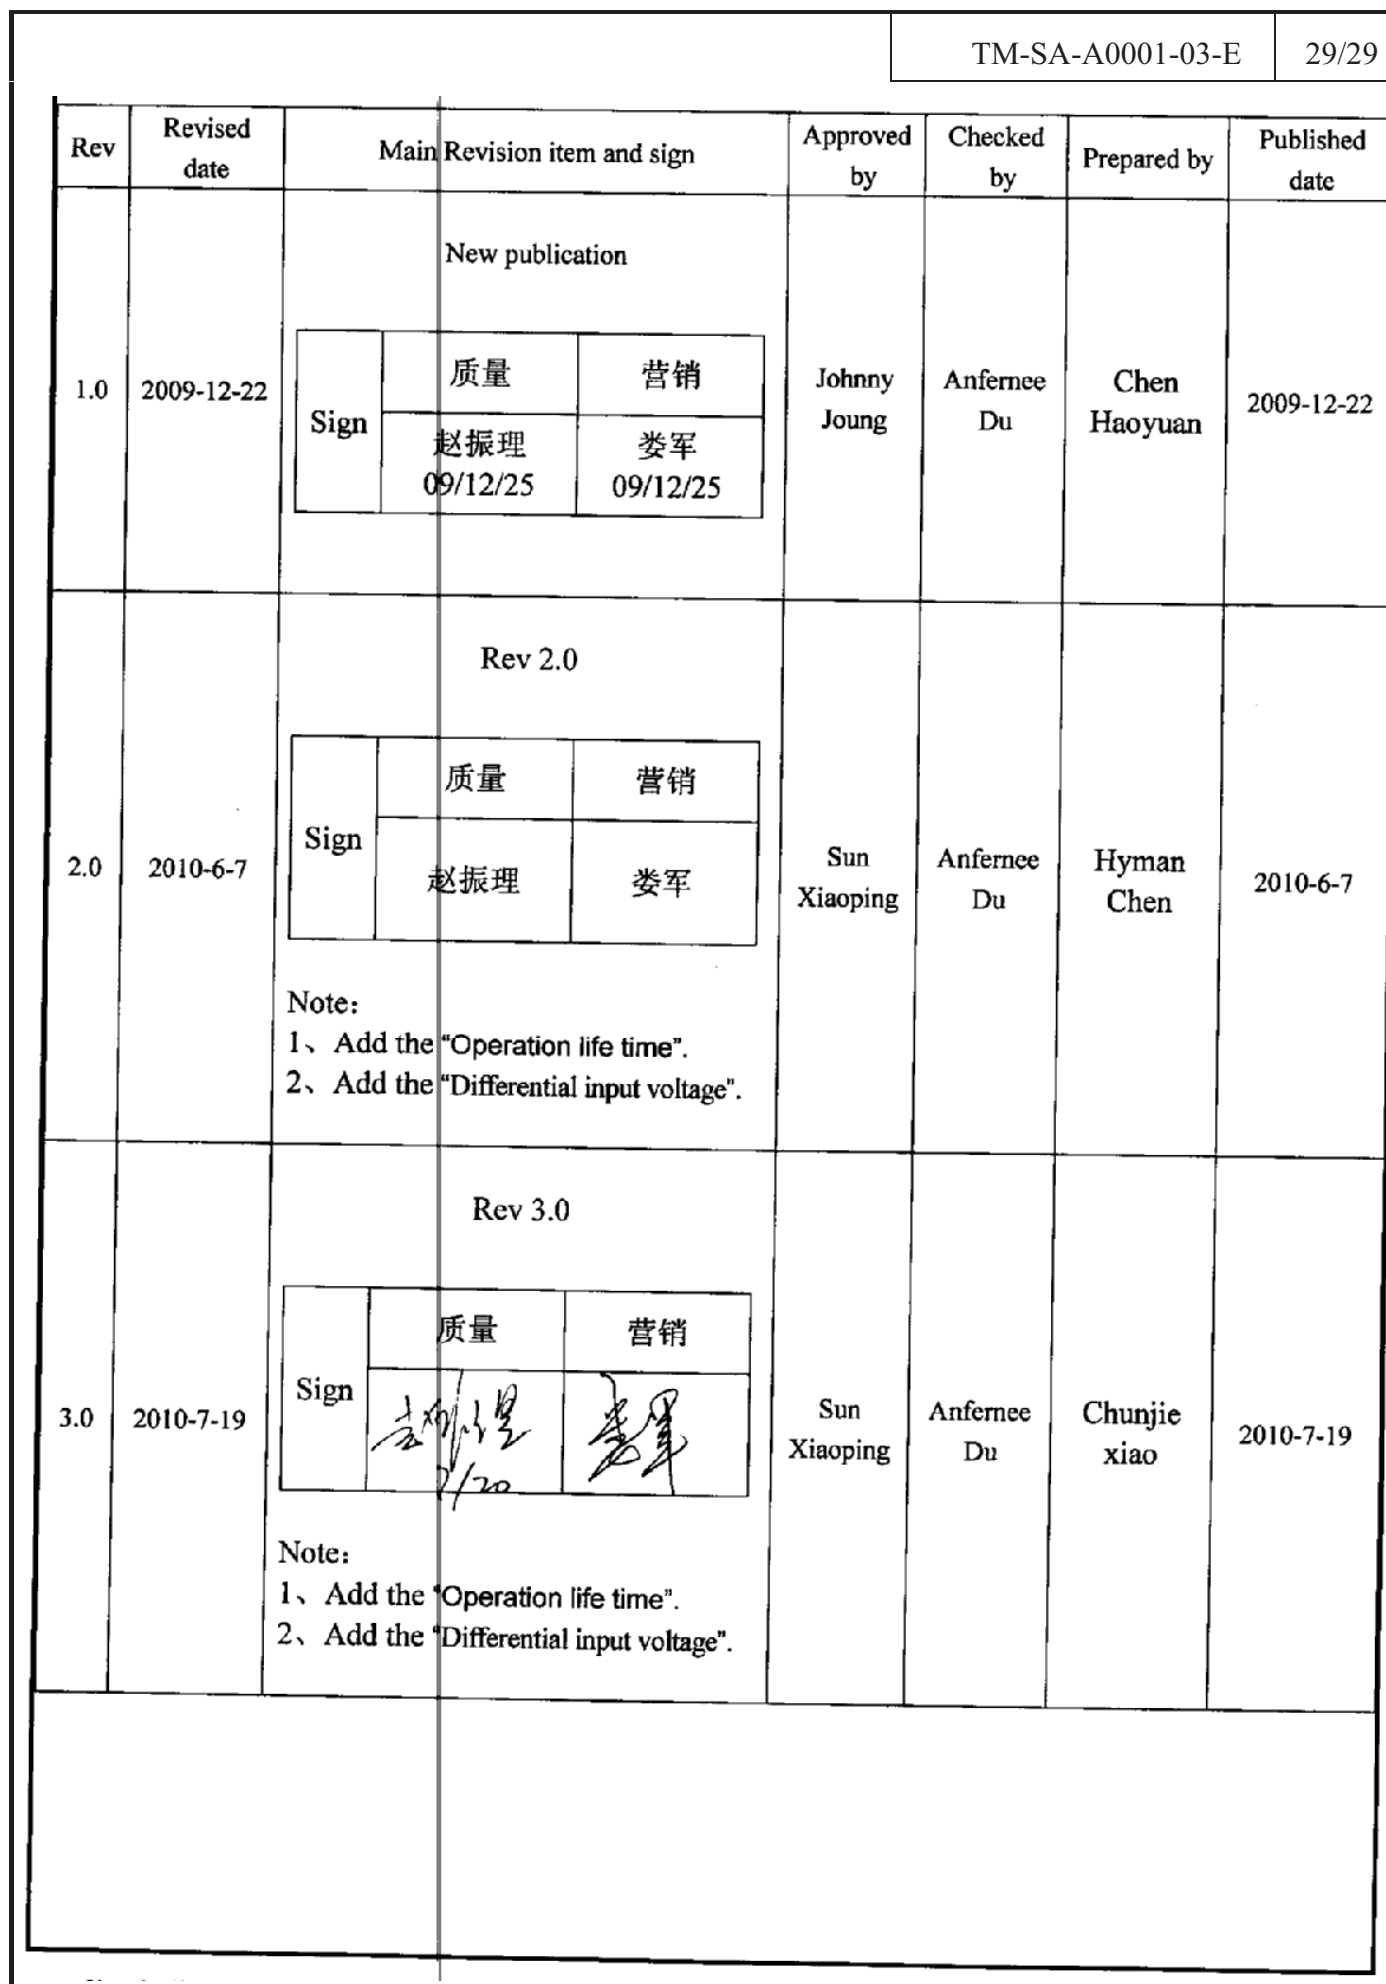 TM-SA-A0001-03-E 29/29
Rev Revised date Main Revision item and sign Approved by Checked by Prepared by Published date
New publication
1.0 2009-12-22
Sign 质量 营销
赵振理 娄军
09/12/25 09/12/25
Johnny Joung Anfernee Du Chen Haoyuan 2009-12-22
Rev 2.0
2.0 2010-6-7
Sign 质量 营销
赵振理 娄军
Note：
1、Add the “Operation life time”.
2、Add the “Differential input voltage”.
Sun Xiaoping Anfernee Du Hyman Chen 2010-6-7
Rev 3.0
3.0 2010-7-19
Sign 质量 营销
7/20
Note：
1、Add the “Operation life time”.
2、Add the “Differential input voltage”.
Sun Xiaoping Anfernee Du Chunjie xiao 2010-7-19